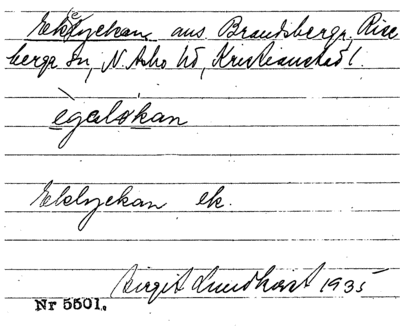 Eklyckan aus. Brandsberga, Rise
berga sn, N. Åsbo hd, Kristianstad l.
ègaløkan
Eklyckan ek.
Birgit Lundkvist 1935
Nr 5501.